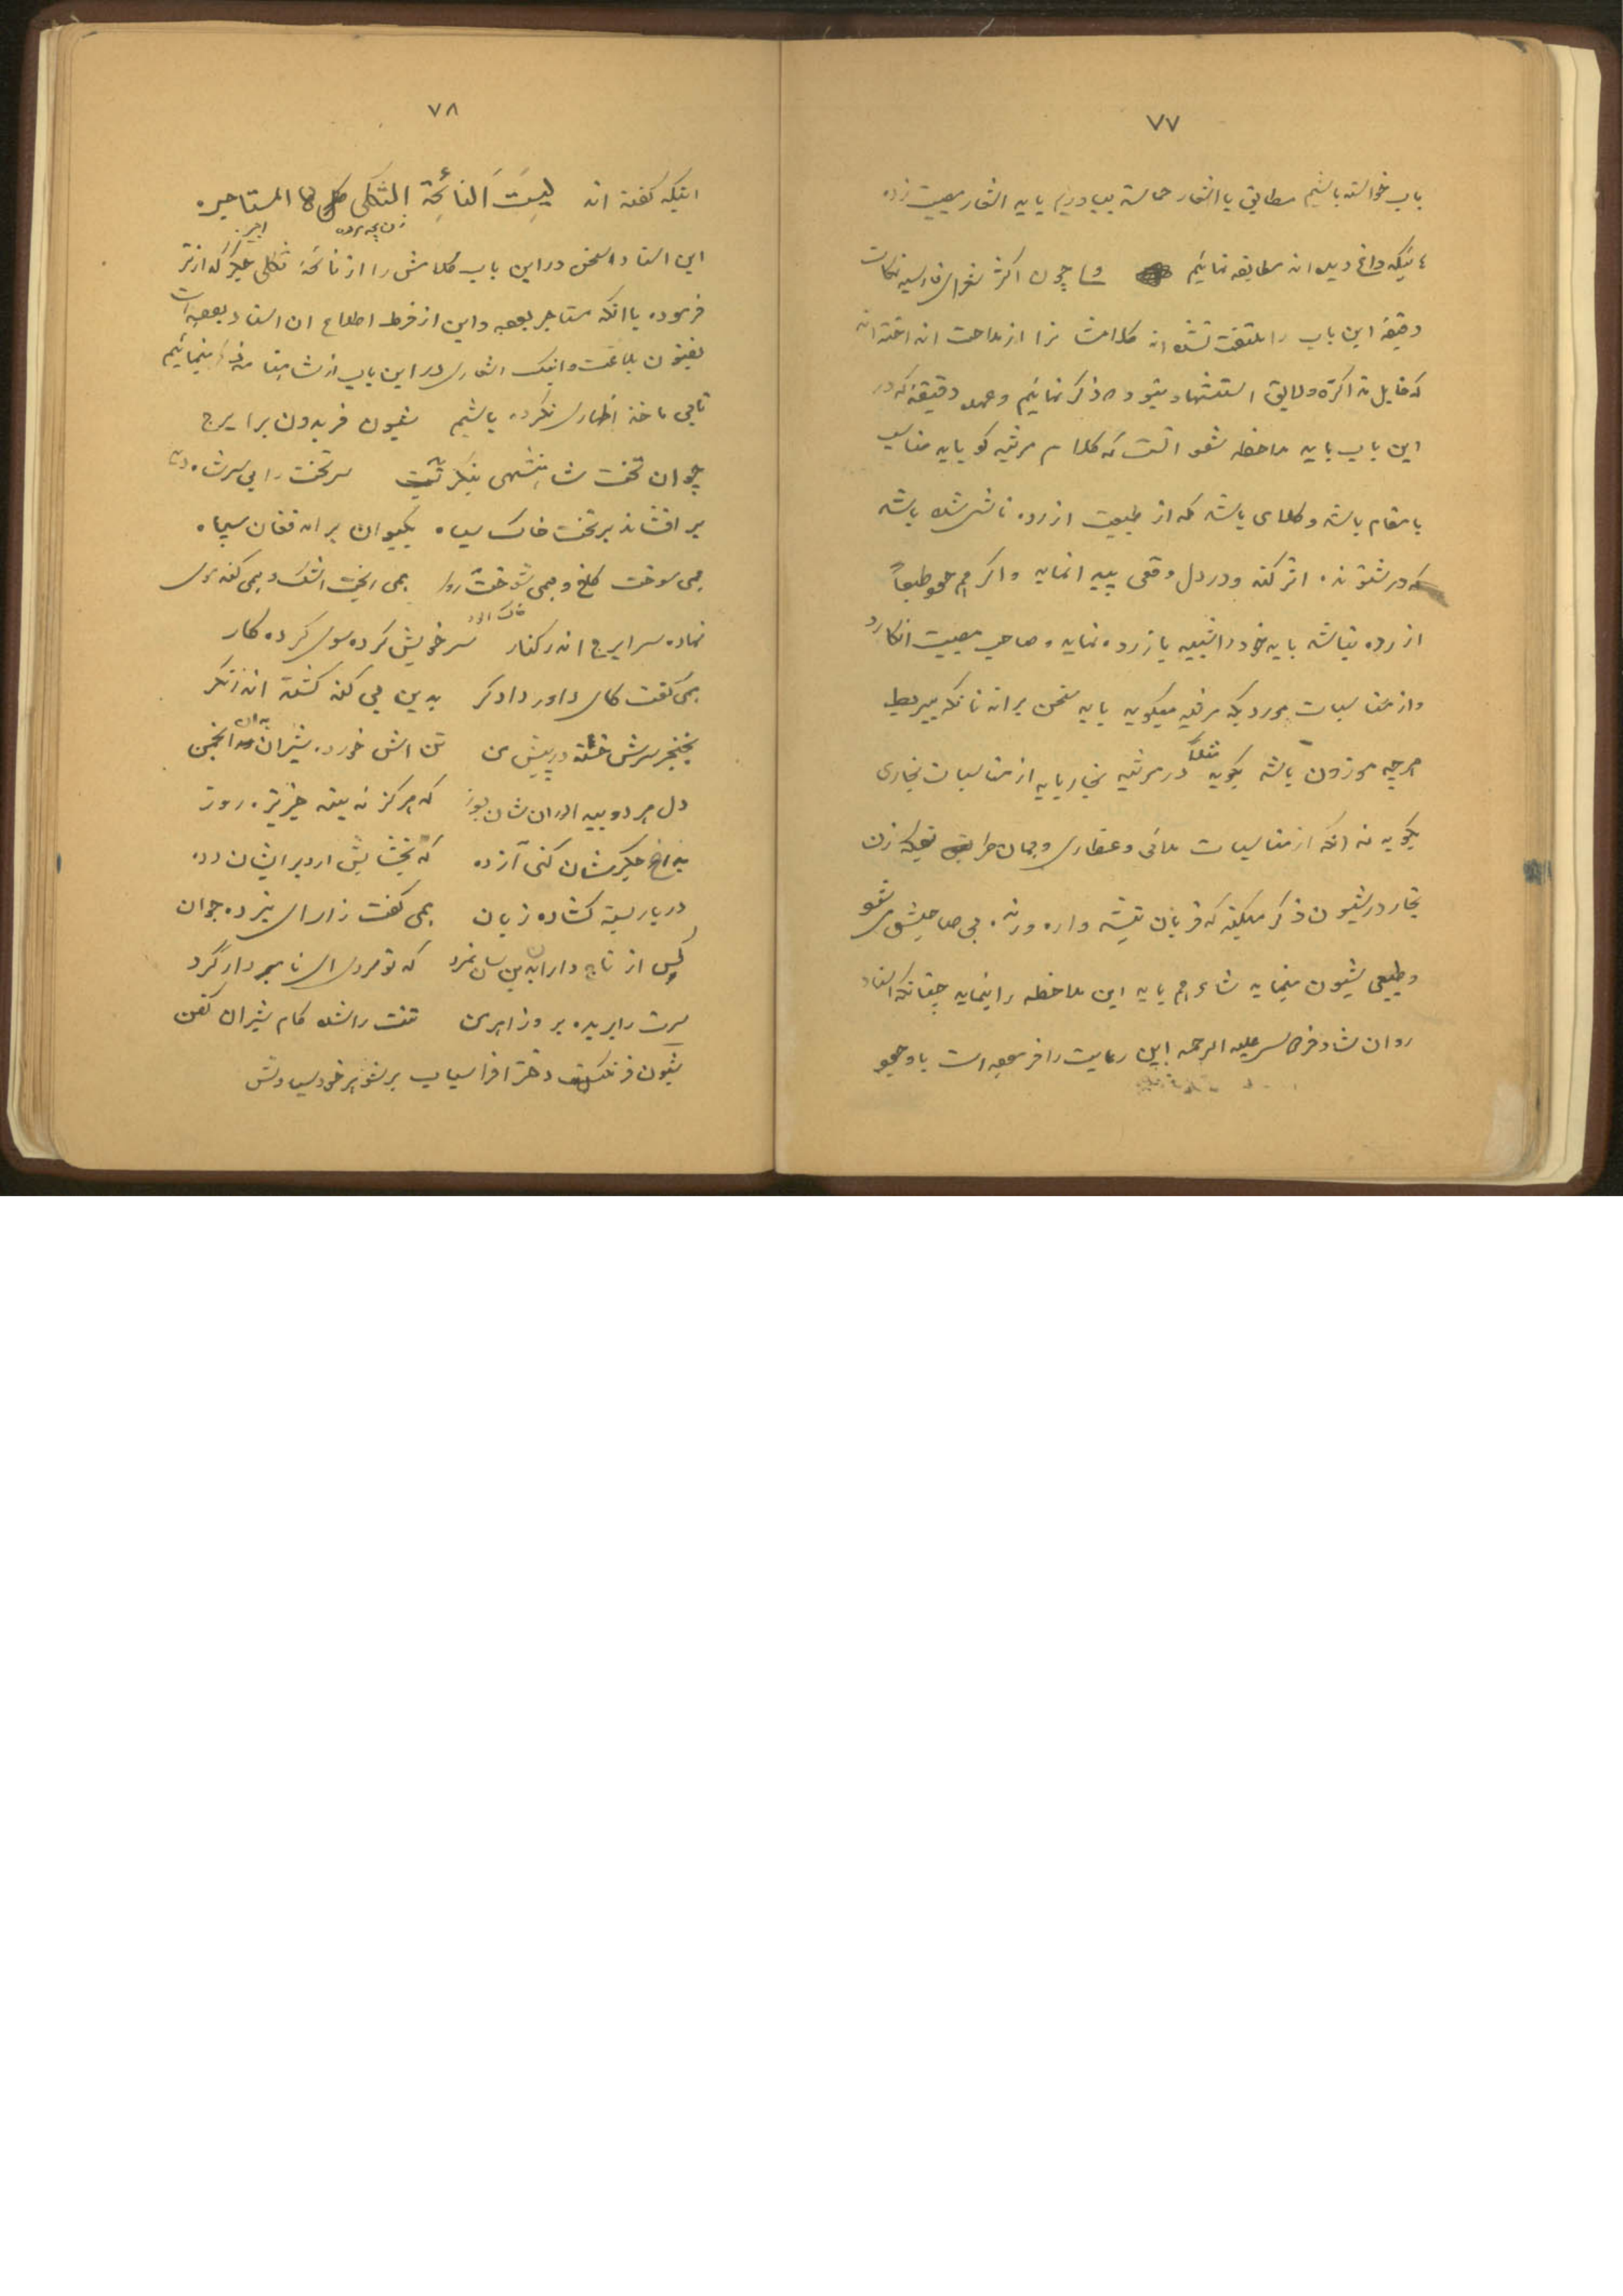 ۷۷
باب خواسته باشیم مطابق با اشعار حماسه بیاوریم باید اشعار مصیبت زده
داغ دیده اند مطابقه نمائیم و چون اکثر شعرای فارسیه نکات
دقیقه این باب را ملتفت نشده اند کلامشان را از ملاحت انداخته اند
که قابل مذاکره و لایق استشهاد بشود ذکر نمائیم و عمده دقیقه که در
این باب باید ملاحظه شود آنست که کلام مرثیه گو باید مناسب
با مقام باشد و کلامی باشد که از طبیعت آزرده ناشی شده باشد
که در شنونده اثر کند و در دل وقعی پیدا نماید و اگر هم خود طبعاً
آزرده نباشد باید خود را شبیه بآزرده نماید و صاحب مصیبت انگارد
و از مناسبات موردیکه مرثیه میگوید باید سخن براند نه آنکه بیربط
هر چه موزون باشد بگوید مثلاً در مرثیه نجار باید از مناسبات نجاری
بگوید نه آنکه از مناسبات ملائی و عطاری و بهمان طریق که زن
نجار در شیون ذکر میکند که قربان تیشه و اره ورنده بی صاحبش شو
و طبیعی شیون مینماید شاعر هم باید این ملاحظه را بنماید چنانکه استاد
روان شاد فردوسی علیه الرحمه این رعایت را فرموده است با وجود
۷۸
اینکه گفته اند لیست النائحة الثکلی کالمستاجره
زن بچه مرده اجیر
این استاد سخن در این باب کلامش را از نائحهٔ ثکلی جگر گدازتر
فرموده با آنکه مستاجر بوده و این از فرط اطلاع آن استاد بوده است
بفنون بلاغت و اینک اشعاری در این باب از شاهنامه ذکر مینمائیم
تا بی ماخذ اظهاری نکرده باشیم شیون فریدون بر ایرج
چو آن تخت شاهنشهی بنگرید سر تخت را بی سر شاه دید
بر افشاند بر تخت خاک سیاه بکیوان بر آمد فغان سپاه
همی سوخت کاخ و همی خست روی همی ریخت اشک و همی کند موی
نهاده سر ایرج اندر کنار سر خویش کرده سوی کردگار
خاک آلود
همی گفت کای داور دادگر بدین بی گنه کشته اندر نگر
بخنجر سرش خسته در پیش من تنش خورده شیران آن انجمن
دل هر دو بیداد از آن سان بسوز که هرگز نه بینند جز تیره روز
بداغی جگرشان کنی آزده که بخشایش آرد بر ایشان دده
در بار بسته گشاده زبان همی گفت زار ای نبرده جوان
کس از تاجداران بدین سان نمرد که تو مردی ای نامبردار گرد
سرت را بریده بزور اهرمن تنت را شده کام شیران کفن
شیون فرنگیس دختر افراسیاب بر شوهر خود سیاوش